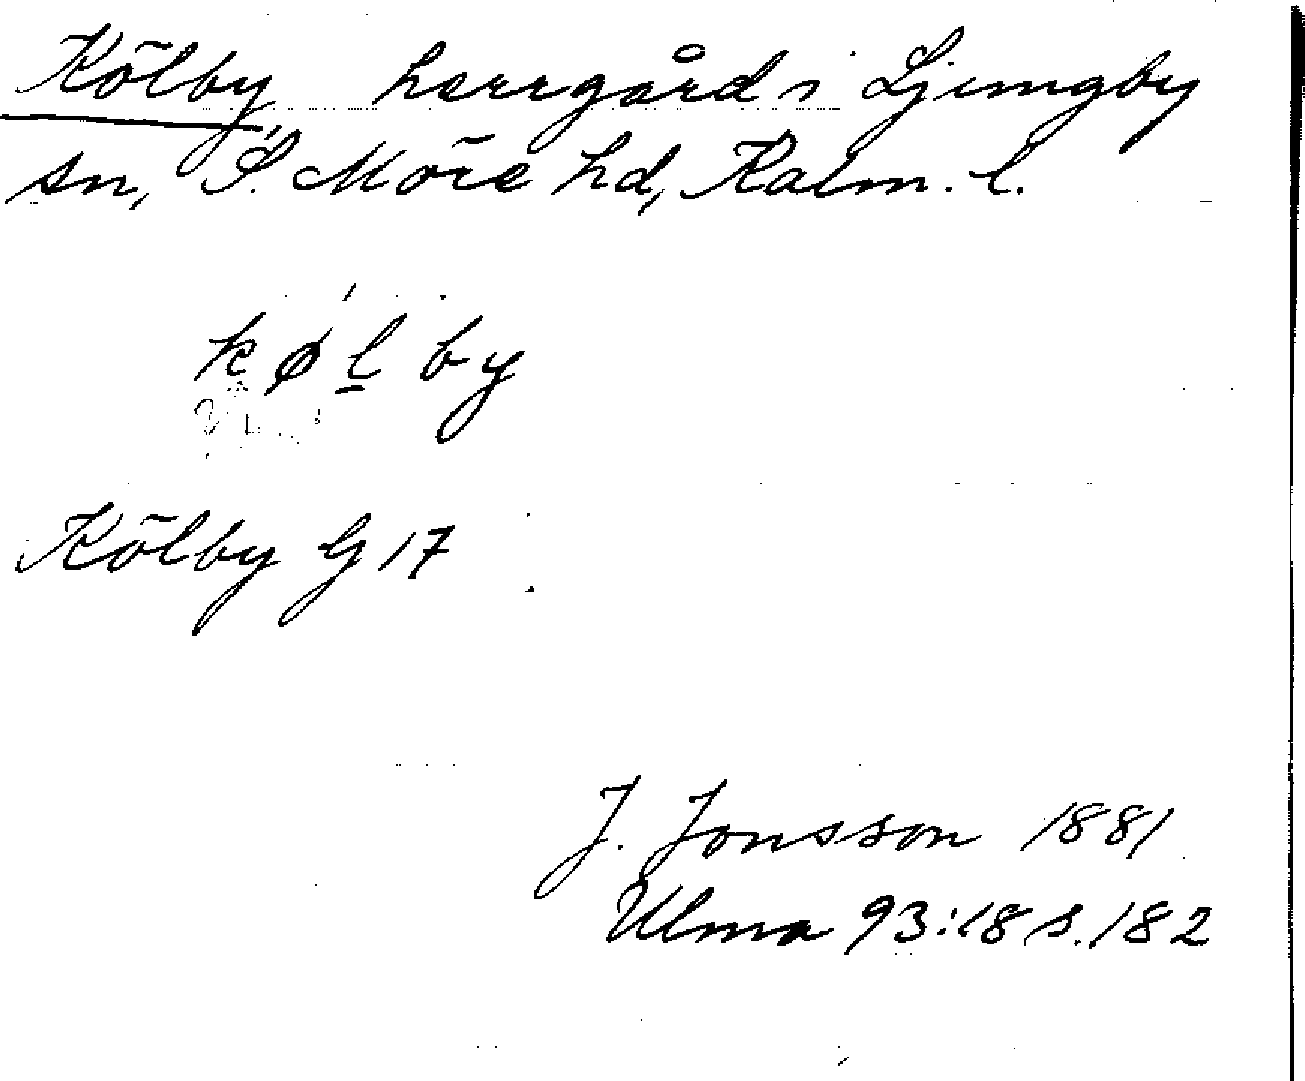 Kölby, herrgård i Ljungby
sn, S. Möre hd, Kalm. l.
kølby
Kölby G 17
J. Jonsson 1881
Ulma 93:18 s. 182